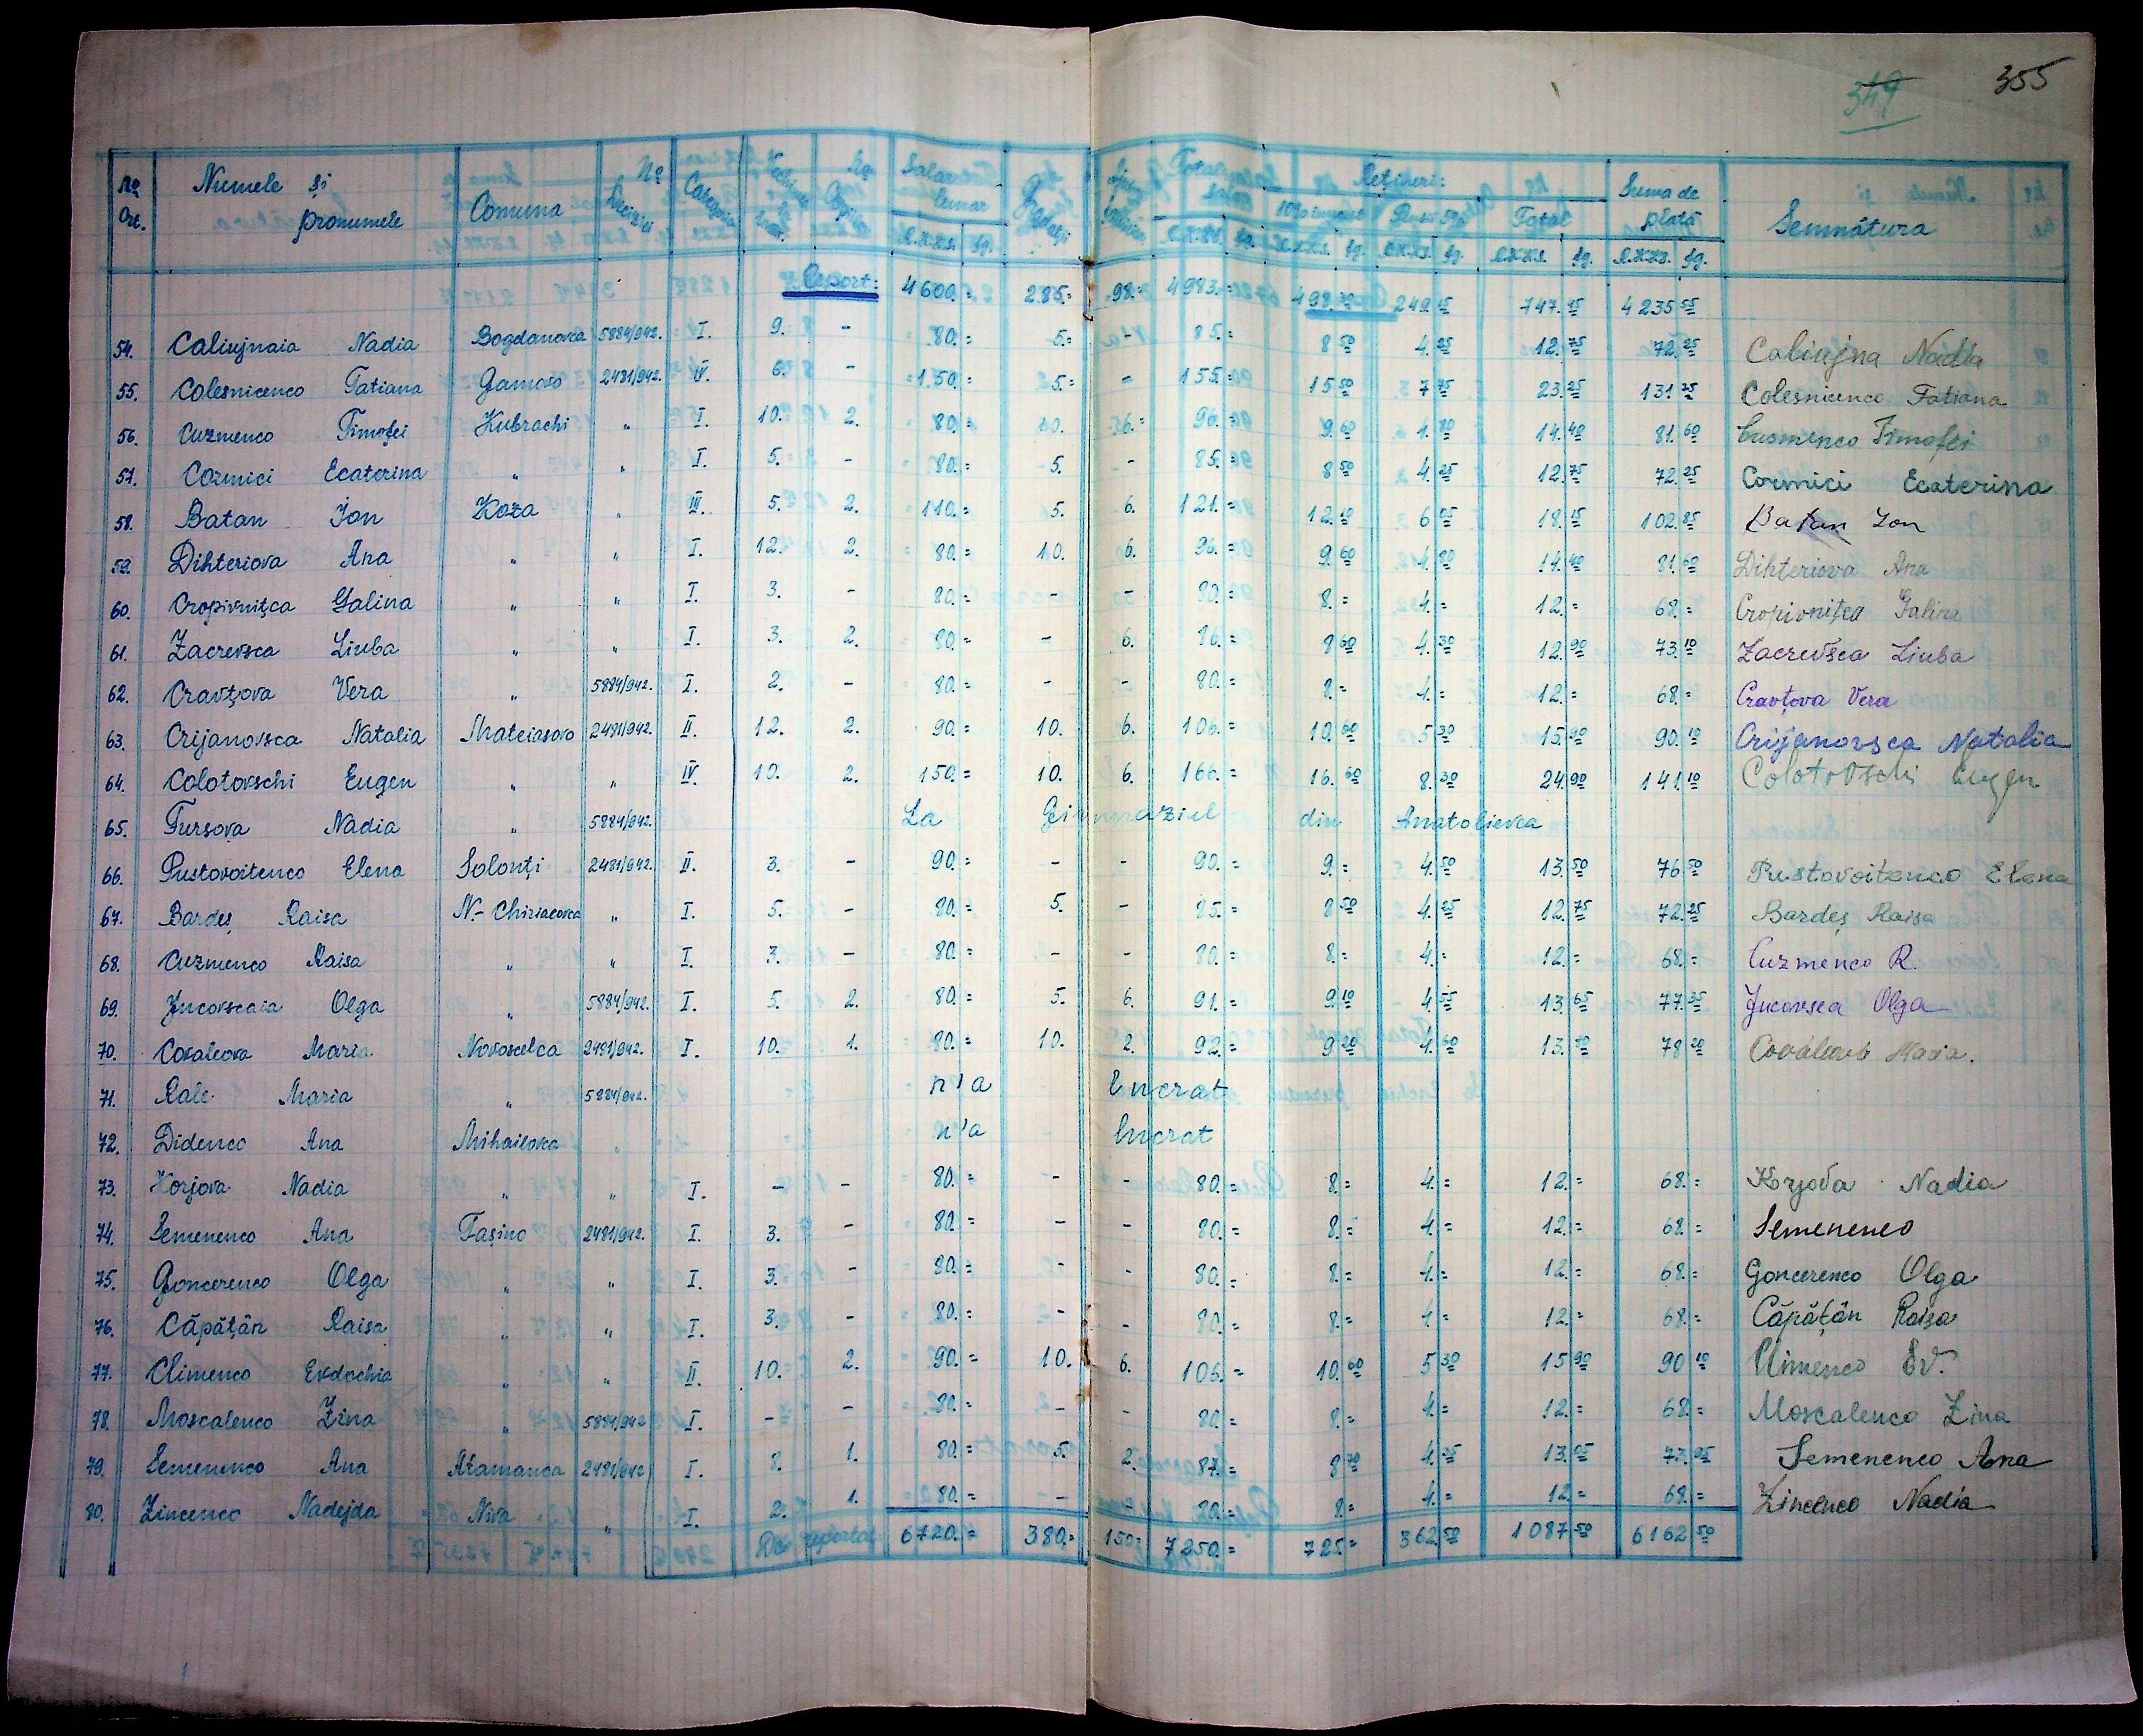 349 355
No Ort. Numele și pronumele Comuna No Deciziei Categoria No Copiilor Salariu lunar Gradații Total salar Rețineri: Suma de plată Semnătura
10% impozit Pensii 5% Total
R.K.K.S. fg. R.K.K.S. fg. R.K.K.S. fg. R.K.K.S. fg. R.K.K.S. fg. R.K.K.S. fg.
Report: 4600.= 285.= 98.= 4983.= 498.30 249.15 747.45 4235 55
54. Caliujnaia Nadia Bogdanovca 5884/942. I. 9. - 80.= 5.= - 85.= 8 50 4.25 12.75 72.25 Caliujna Nadia
55. Colesnicenco Tatiana Gamovo 2481/942. IV. 6. - 150.= 5.= - 155.= 15 50 7 75 23.25 131.25 Colesnicenco Tatiana
56. Cuzmenco Timofei Kubrachi " I. 10. 2. 80.= 10. 6.= 96.= 9.60 4.80 14.40 81.60 Cusmenco Timofei
57. Cormici Ecaterina " " I. 5. - 80.= 5. - 85.= 8 50 4.25 12.75 72.25 Cormici Ecaterina
58. Batan Ion Koza " III. 5. 2. 110.= 5. 6. 121.= 12.10 6 05 18.15 102.85 Batan Ion
59. Dihteriova Ana " " I. 12. 2. 80.= 10. 6. 96.= 9.60 4.80 14.40 81.60 Dihteriova Ana
60. Cropivnițca Galina " " I. 3. - 80.= - - 80.= 8.= 4.= 12.= 68.= Cropivnițca Galina
61. Zacrevsca Liuba " " I. 3. 2. 80.= - 6. 86.= 8 60 4.30 12.90 73.10 Zacrevsca Liuba
62. Cravțova Vera " 5884/942. I. 2. - 80.= - - 80.= 8.= 4.= 12.= 68.= Cravțova Vera
63. Crijanovsca Natalia Mateiasovo 2481/942. II. 12. 2. 90.= 10. 6. 106.= 10.60 5 30 15.90 90.10 Crijanovsca Natalia
64. Colotovschi Eugen " " IV. 10. 2. 150.= 10. 6. 166.= 16.60 8.30 24.90 141.10 Colotovschi Eugen
65. Fursova Nadia " 5884/942. La Gimnaziul din Anatolievca
66. Pustovoitenco Elena Solonți 2481/942. II. 3. - 90.= - - 90.= 9.= 4.50 13.50 76 50 Pustovoitenco Elena
67. Bardeș Raisa N.-Chiriacovca " I. 5. - 80.= 5. - 85.= 8 50 4.25 12.75 72.25 Bardeș Raisa
68. Cuzmenco Raisa " " I. 3. - 80.= - - 80.= 8.= 4.= 12.= 68.= Cuzmenco R.
69. Jucovscaia Olga " 5884/942. I. 5. 2. 80.= 5. 6. 91.= 9.10 4.55 13.65 77.35 Jucovsca Olga
70. Covaleova Maria Novoselca 2481/942. I. 10. 1. 80.= 10. 2. 92.= 9 20 4.60 13.80 78 20 Maria.
71. Rale Maria " 5884/942. n'a lucrat
72. Didenco Ana Mihailovca " n'a lucrat
73. Korjova Nadia " " I. - - 80.= - - 80.= 8.= 4.= 12.= 68.= Korjova Nadia
74. Semenenco Ana Tașino 2481/942. I. 3. - 80.= - - 80.= 8.= 4.= 12.= 68.= Semenenco
75. Goncerenco Olga " " I. 3. - 80.= - - 80.= 8.= 4.= 12.= 68.= Goncerenco Olga
76. Căpățân Raisa " " I. 3. - 80.= - - 80.= 8.= 4.= 12.= 68.= Căpățân Raisa
77. Climenco Evdochia " " II. 10. 2. 90.= 10. 6. 106.= 10.60 5 30 15 90 90 10 Climenco Ev.
78. Moscalenco Zina " 5884/942 I. - - 80.= - - 80.= 8.= 4.= 12.= 68.= Moscalenco Zina
79. Semenenco Ana Atamanca 2481/942 I. 8. 1. 80.= 5. 2. 87.= 8 70 4.35 13.05 73.95 Semenenco Ana
80. Zincenco Nadejda Niva " I. 2. 1. 80.= - - 80.= 8.= 4.= 12.= 68.= Zincenco Nadia
De reportat 6720.= 380.= 150.= 7250.= 725.= 362 50 1087 50 6162 50